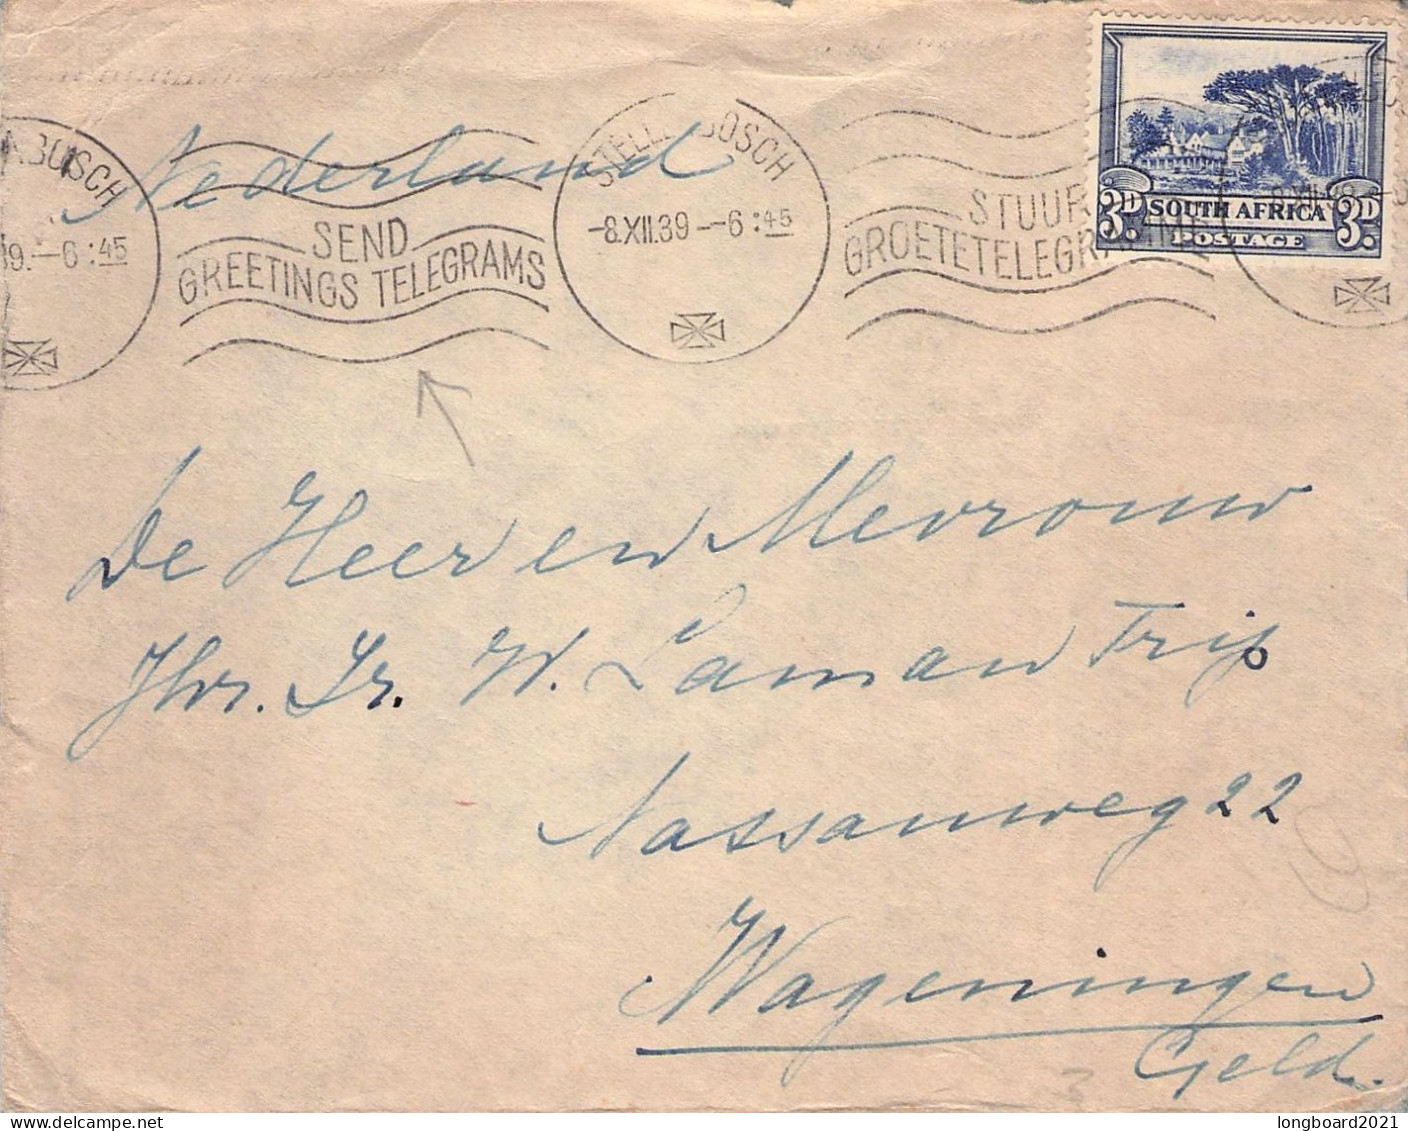 Nederland
STELLENBOSCH
-8.XII.39 --6:45
SEND
GREETINGS TELEGRAMS
STUUR
GROETETELEGRAMME
39.--6:45
3D SOUTH AFRICA 3D
POSTAGE
De Heer en Mevrouw
Jhr. Ir. W. Laman Trip
Nassauweg 22
Wageningen
Geld.
3
delcampe.net
longboard2021